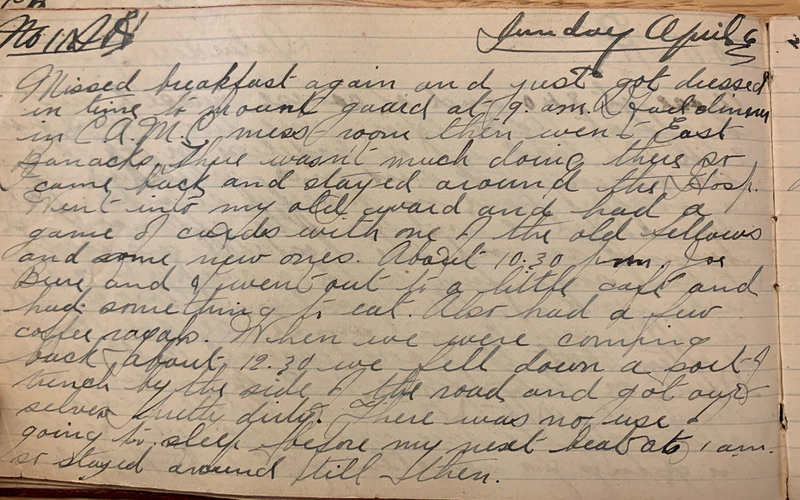 Sunday April 6
Missed breakfast again and just got dressed
in time to mount guard at 9. am. Had dinner
in C.A.M.C. mess room then went East
Baracks. There wasn't much doing there so
came back and stayed around the Hosp.
Went into my old ward and had a
game of cards with one of the old fellows
and some new ones. About 10.30 pm. Joe
and I went out to a little café and
had something to eat. Also had a few
coffee royals. When we were coming
back about 12.30 we fell down a sort of
trench by the side of the road and got our
selves pretty dirty. There was no use
going to sleep before my next beat at 1 am.
so stayed around till then.